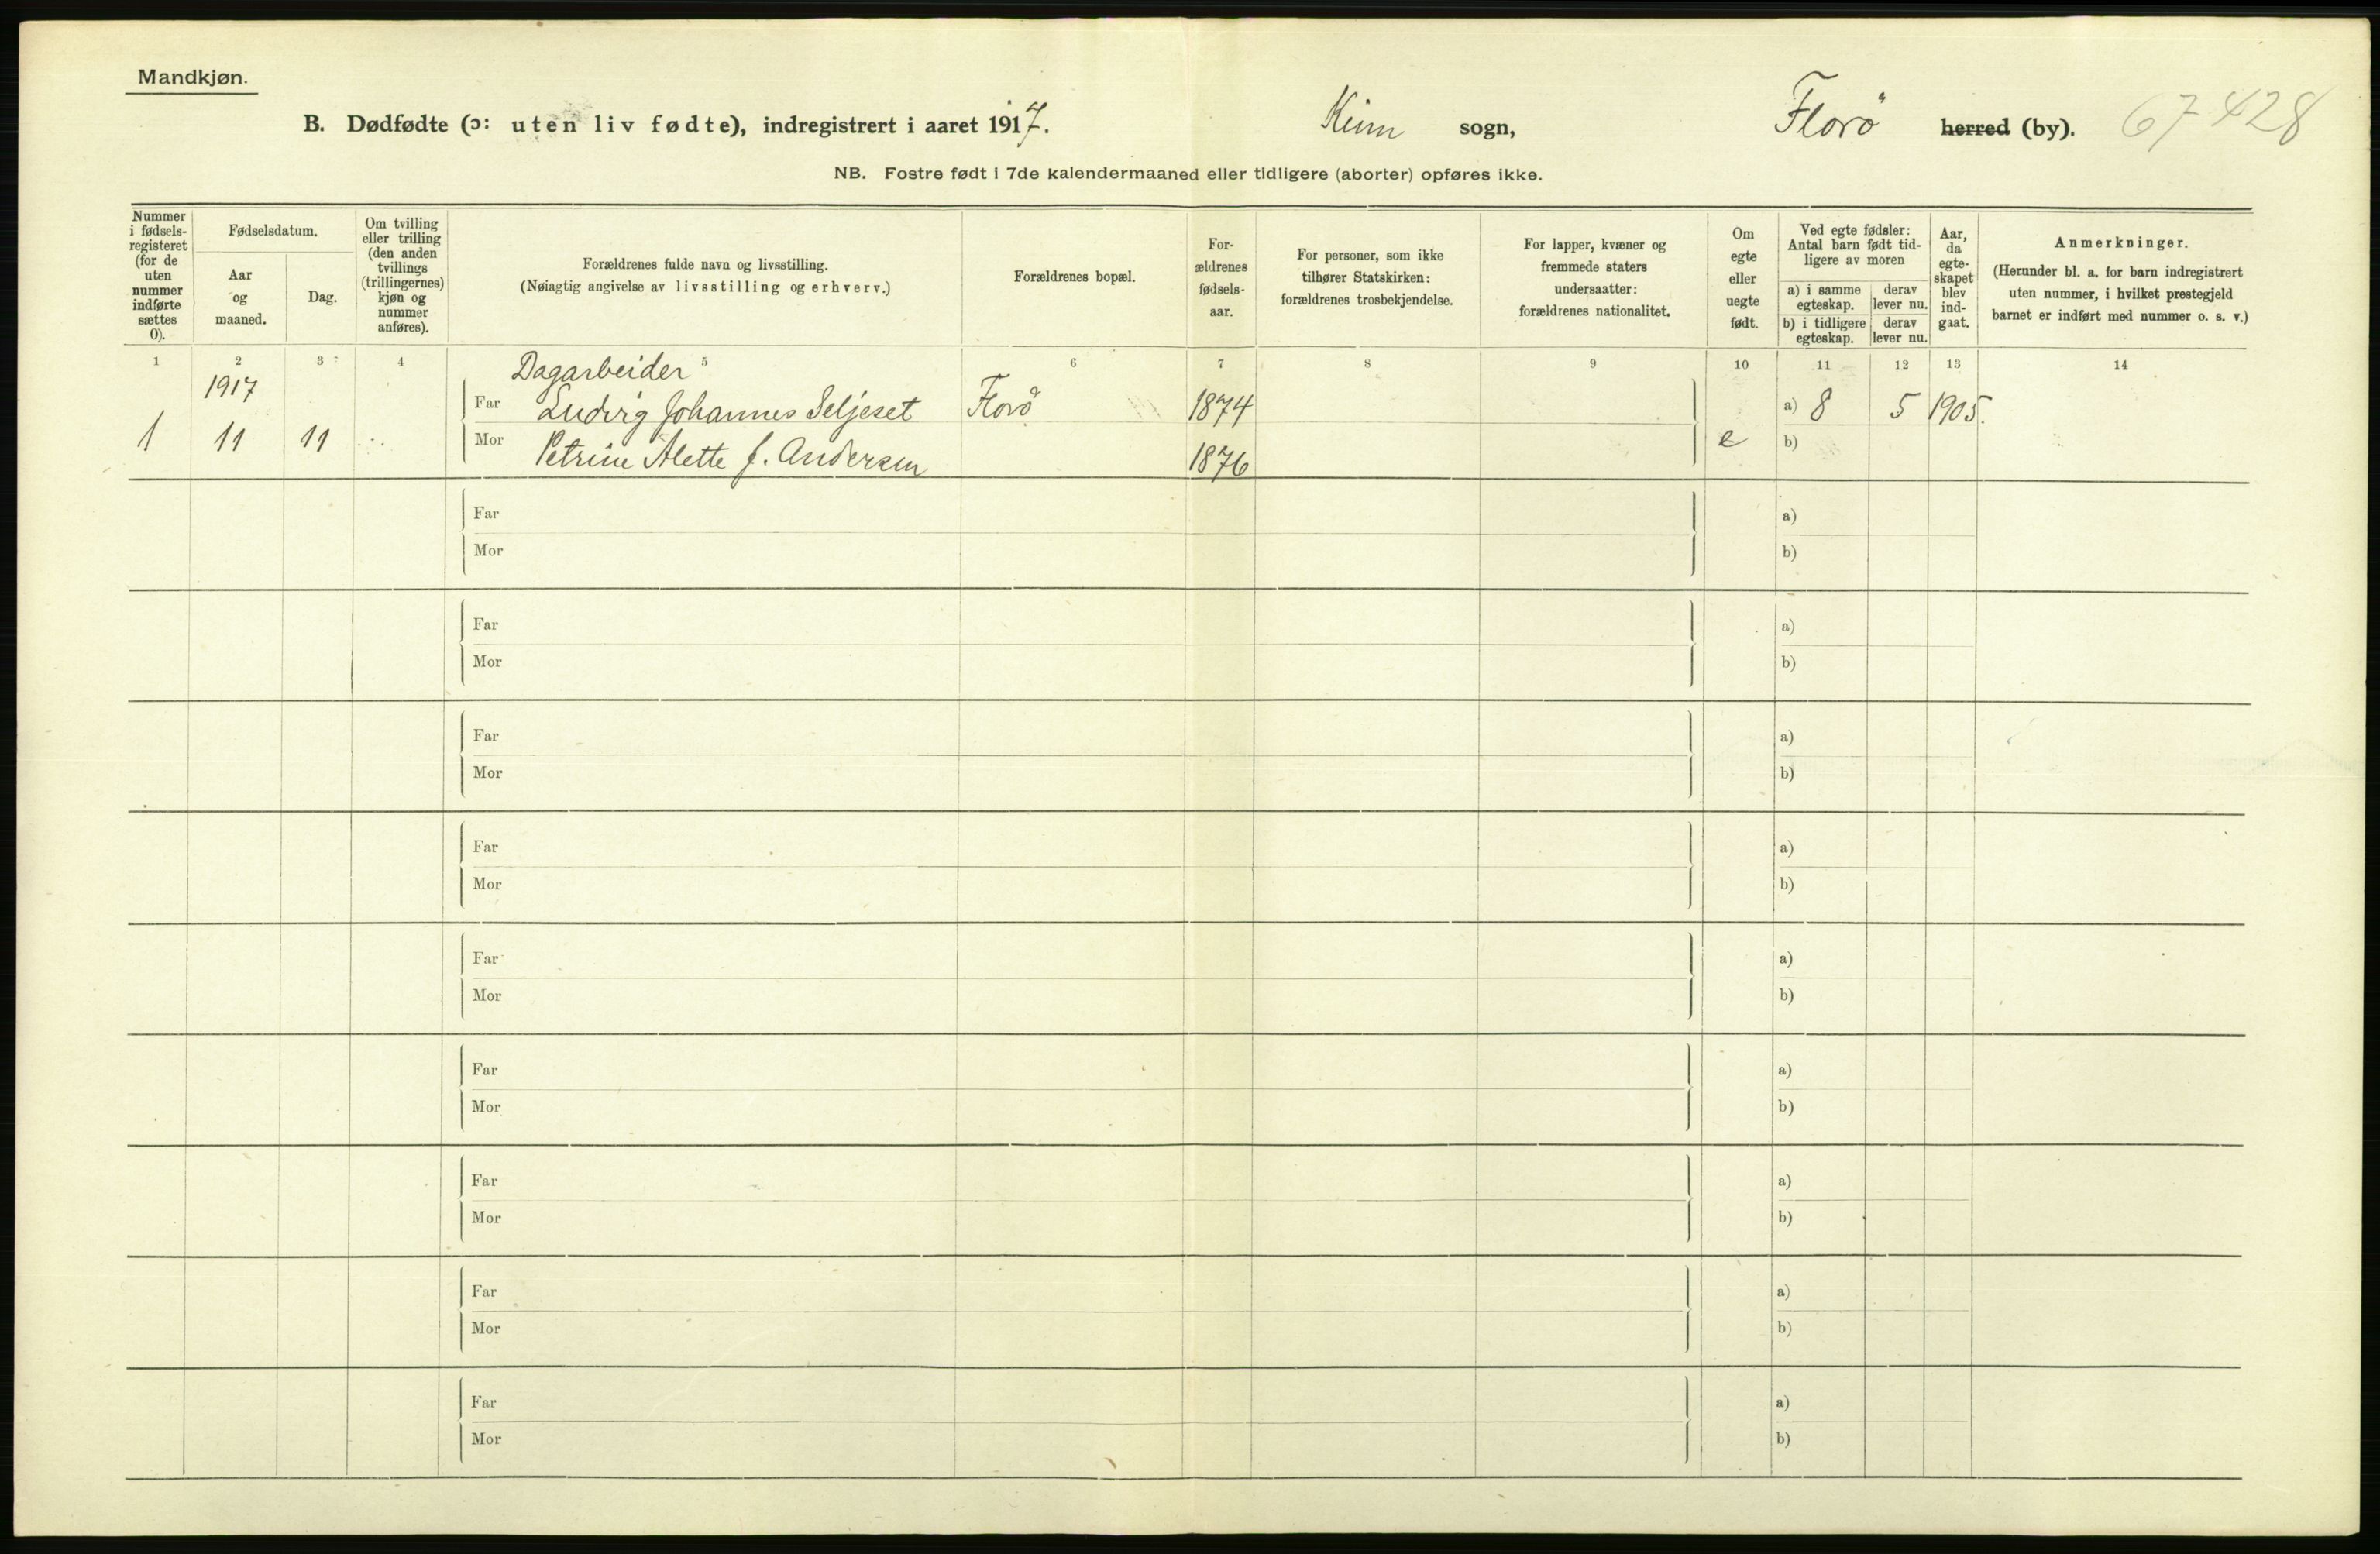 Mandkjøn.
B. Dødfødte (ɔ: uten liv fødte), indregistrert i aaret 1917. Kinn sogn, Florö herred (by). 67428
NB. Fostre født i 7de kalendermaaned eller tidligere (aborter) opføres ikke.
Nummer i fødsels-registeret (for de uten nummer indførte sættes 0).
Fødselsdatum.
Aar og maaned.
Dag.
Om tvilling eller trilling (den anden tvillings (trillingernes) kjøn og nummer anføres).
Forældrenes fulde navn og livsstilling.
(Nøiagtig angivelse av livsstilling og erhverv.)
Forældrenes bopæl.
For-ældrenes fødsels-aar.
For personer, som ikke tilhører Statskirken: forældrenes trosbekjendelse.
For lapper, kvæner og fremmede staters undersaatter: forældrenes nationalitet.
Om egte eller uegte født.
Ved egte fødsler: Antal barn født tid-ligere av moren
a) i samme egteskap. derav lever nu.
b) i tidligere egteskap. derav lever nu.
Aar, da egte-skapet blev ind-gaat.
Anmerkninger.
(Herunder bl. a. for barn indregistrert uten nummer, i hvilket prestegjeld barnet er indført med nummer o. s. v.)
1 2 3 4 5 6 7 8 9 10 11 12 13 14
1917 Dagarbeider
Far Ludvig Johannes Seljeset Florö 1874 a) 8 5 1905.
1 11 11 Mor Petrine Alette f. Andersen 1876 e b)
Far a)
Mor b)
Far a)
Mor b)
Far a)
Mor b)
Far a)
Mor b)
Far a)
Mor b)
Far a)
Mor b)
Far a)
Mor b)
Far a)
Mor b)
Far a)
Mor b)